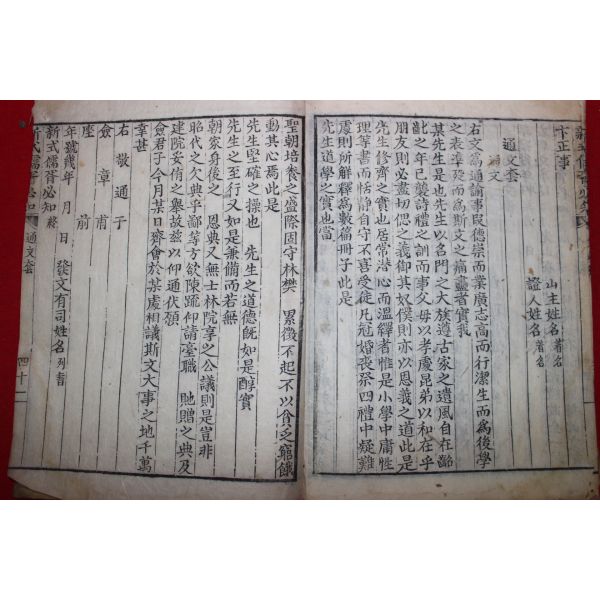 卞正事
山主姓名着名
證人姓名着名
通文套
文
右文爲通諭事叚德崇而業廣志高而行潔生而爲後學
之表準歿而爲斯文之痛盡者實我
某先生是也先生以名門之大族遵古家之遺風自在齠
齔之年已襲詩禮之訓而事父母以孝處昆弟以和在乎
朋友則必盡切偲之義御其奴僕則亦以恩義之道此是
先生修齊之實也居常潛心而溫繹者惟是小學中庸性
理等書而恬靜自守不喜受徒凡冠婚喪祭四禮中疑難
處則所解釋爲數篇冊子此是
先生道學之實也當
聖朝培養之盛際固守林樊 累徵不起不以貧乏窮餓
動其心焉此是
先生堅確之操也 先生之道德旣如是醇實
先生之至行又如是兼備而若無
朝家身後之 恩典又無士林院享之公議則是豈非
昭代之欠典乎鄙等方欲陳疏仰請臺職 貤贈之典及
建院妥侑之擧故玆以仰通伏願
僉君子今月某日齊會於某處相議斯文大事之地千萬
幸甚
右敬通于
僉 章甫
座 前
年號幾年 月 日 發文有司姓名列書
新式儒胥必知終
新式儒胥必知 通文套 四十二